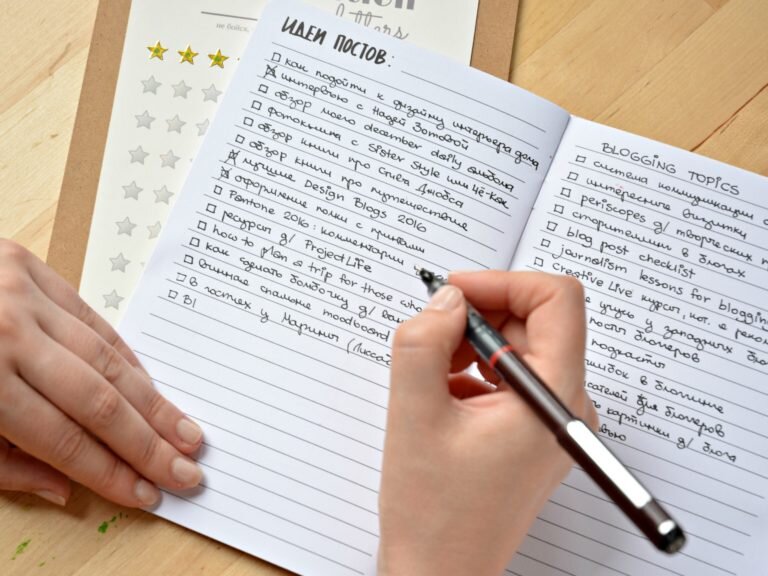 letters
не бойся,
ИДЕИ ПОСТОВ:
как подойти к дизайну интерьера дома
интервью с Надей Зотовой
обзор моего december daily альбома
фотокнига с Sister Style или чё-как
обзор книги про Стива Джобса
обзор книги про путешествие
лучшие Design Blogs 2016
оформление полки с принтами
Pantone 2016: комментарии
ресурсы д/ Project Life
how to plan a trip for those who
как сделать бомбочку д/ ванн
винная спальня moodboard
в гостях у Марины (Лисса
Ві
BLOGGING TOPICS
система коммуникации с
интересные визитки
periscopes д/ творческих п
сторителлинг в блогах
blog post checklist
journalism lessons for blogging
Creative Live курсы, кот. я реком
учусь у западных бло
посты блогеров
подкасты
ошибок в блоггинге
для блогеров
картинки д/ блога